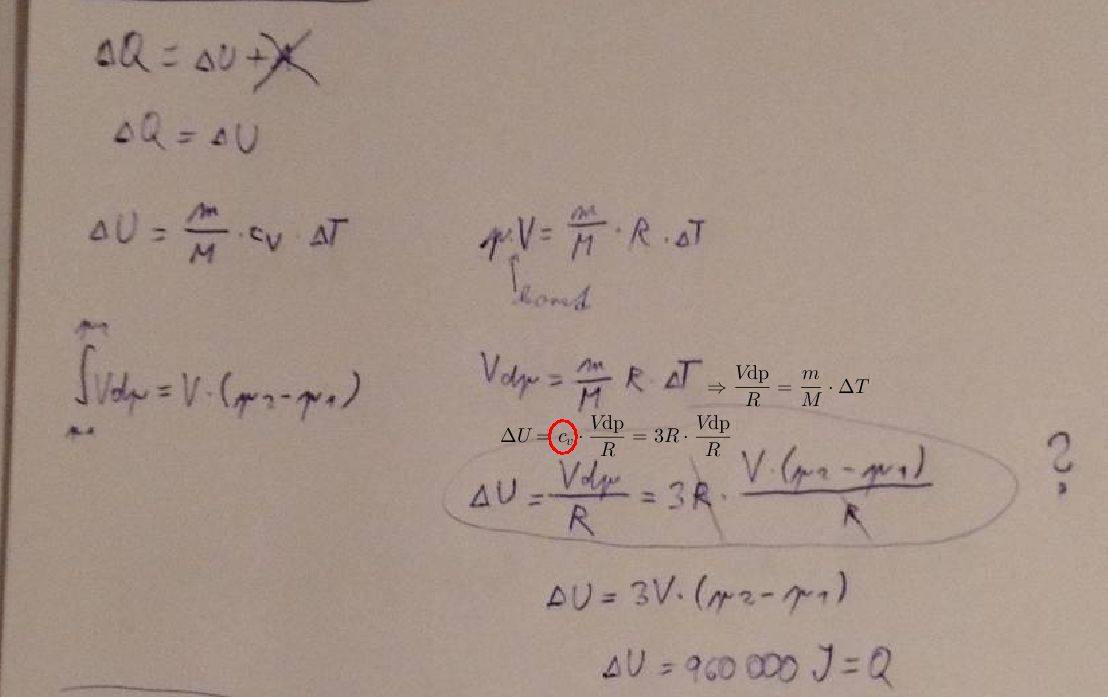 ΔQ = ΔU + A
ΔQ = ΔU
ΔU = m/M · c_V · ΔT
p.V = m/M · R . ΔT
const
∫Vdp = V · (p₂ - p₁)
Vdp = m/M R · ΔT ⇒ Vdp/R = m/M · ΔT
ΔU = c_v · Vdp/R = 3R · Vdp/R
ΔU = Vdp/R = 3R · V·(p₂ - p₁)/R
?
ΔU = 3V · (p₂ - p₁)
ΔU = 960 000 J = Q